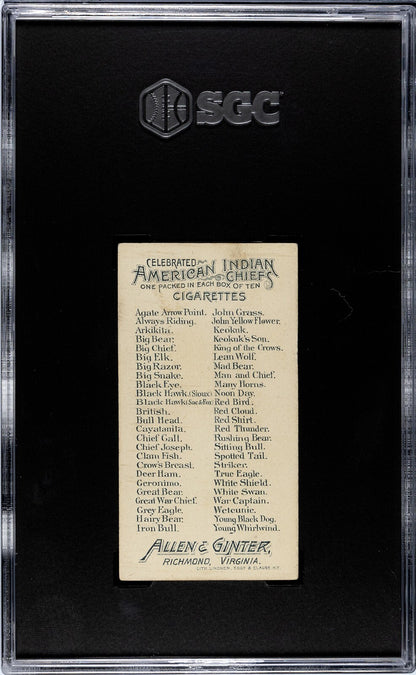 SGC
CELEBRATED
AMERICAN INDIAN
CHIEFS
ONE PACKED IN EACH BOX OF TEN
CIGARETTES
Agate Arrow Point. John Grass.
Always Riding. John Yellow Flower.
Arkikita. Keokuk.
Big Bear. Keokuk's Son.
Big Chief. King of the Crows.
Big Elk. Lean Wolf.
Big Razor. Mad Bear.
Big Snake. Man and Chief.
Black Eye. Many Horns.
Black Hawk. (Sioux) Noon Day.
Black Hawk. (Sac & Fox) Red Bird.
British. Red Cloud.
Bull Head. Red Shirt.
Cayatanita. Red Thunder.
Chief Gall. Rushing Bear.
Chief Joseph. Sitting Bull.
Clam Fish. Spotted Tail.
Crow's Breast. Striker.
Deer Ham. True Eagle.
Geronimo. White Shield.
Great Bear. White Swan.
Great War Chief. War Captain.
Grey Eagle. Wetcunie.
Hairy Bear. Young Black Dog.
Iron Bull. Young Whirlwind.
ALLEN & GINTER,
RICHMOND, VIRGINIA.
LITH. LINDNER, EDDY & CLAUSS. N.Y.